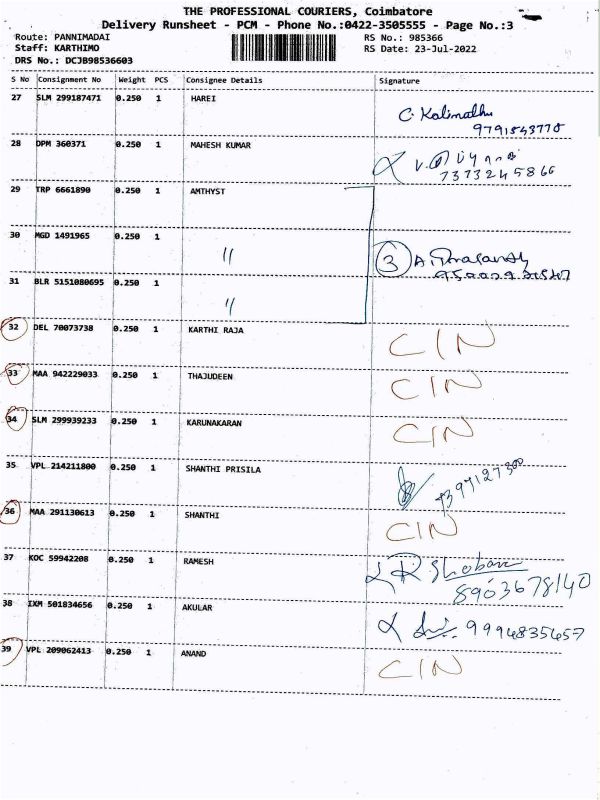 THE PROFESSIONAL COURIERS, Coimbatore
Delivery Runsheet - PCM - Phone No.:0422-3505555 - Page No.:3
Route: PANNIMADAI RS No.: 985366
Staff: KARTHIMO RS Date: 23-Jul-2022
DRS No.: DCJB98536603
S No Consignment No Weight PCS Consignee Details Signature
27 SLM 299187471 0.250 1 HAREI C. Kalimathu
9791543770
28 DPM 360371 0.250 1 MAHESH KUMAR
7373245866
29 TRP 6661890 0.250 1 AMTHYST
30 MGD 1491965 0.250 1 〃 3 A. Prasanth
31 BLR 5151080695 0.250 1 〃
32 DEL 70073738 0.250 1 KARTHI RAJA CIN
33 MAA 942229033 0.250 1 THAJUDEEN CIN
34 SLM 299939233 0.250 1 KARUNAKARAN CIN
35 VPL 214211800 0.250 1 SHANTHI PRISILA 7397127300
36 MAA 291130613 0.250 1 SHANTHI CIN
37 KOC 59942208 0.250 1 RAMESH R Shobana
8903678140
38 IXM 501834656 0.250 1 AKULAR 9994835457
39 VPL 209062413 0.250 1 ANAND CIN